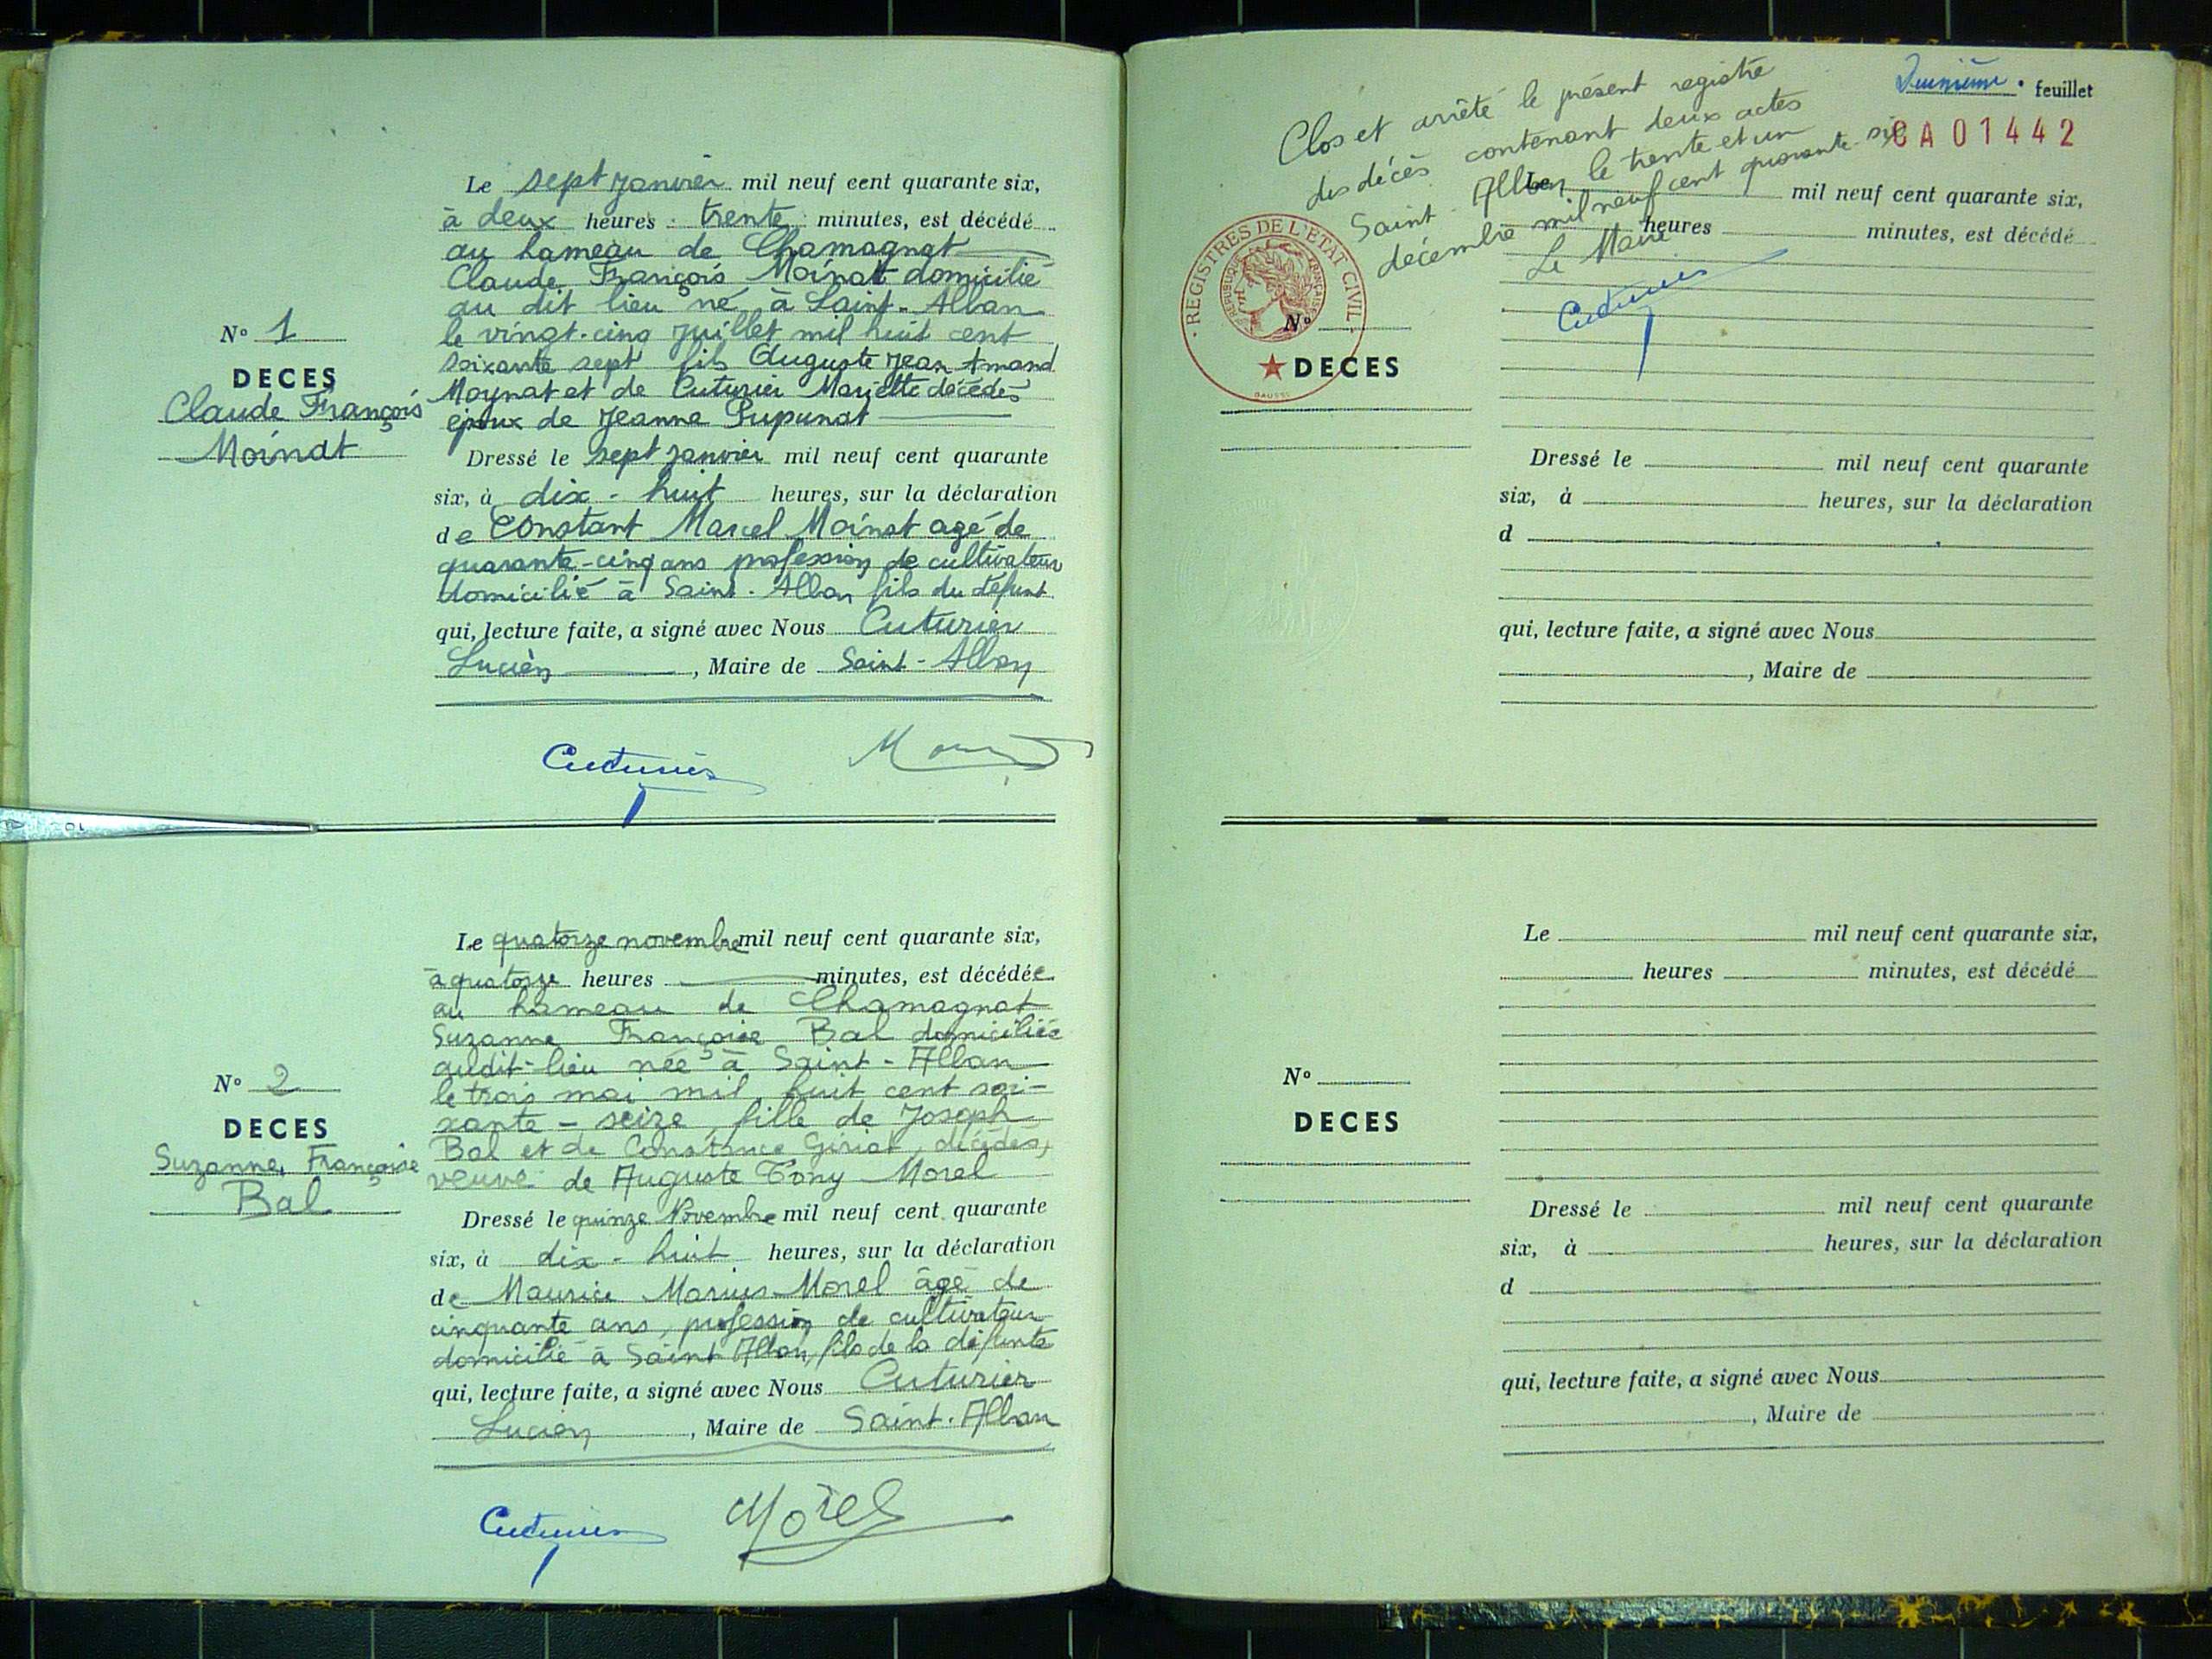 Le sept janvier mil neuf cent quarante six,
à deux heures trente minutes, est décédé
au hameau de Chamagnat
Claude François Moinat domicilié
au dit lieu né à Saint-Alban
le vingt-cinq juillet mil huit cent
soixante sept fils Auguste Jean Amand
Moynat et de Cuturier Mariette décédés
époux de Jeanne Pupunat
Nº 1
DECES
Claude François
Moinat
Dressé le sept janvier mil neuf cent quarante
six, à dix-huit heures, sur la déclaration
de Constant Marcel Moinat agé de
quarante-cinq ans profession de cultivateur
domicilié à Saint-Alban fils du défunt
qui, lecture faite, a signé avec Nous Cuturier
Lucien, Maire de Saint-Alban
Cuturier
Le quatorze novembre mil neuf cent quarante six,
à quatorze heures minutes, est décédée
au hameau de Chamagnat
Suzanne Françoise Bal domiciliée
audit-lieu née à Saint-Alban
le trois mai mil huit cent soi-
xante-seize, fille de Joseph
Bal et de Constance Giriat, décédés,
veuve de Auguste Tony Morel
Nº 2
DECES
Suzanne, Françoise
Bal
Dressé le quinze Novembre mil neuf cent quarante
six, à dix-huit heures, sur la déclaration
de Maurice Marius Morel âgé de
cinquante ans, profession de cultivateur
domicilié à Saint Alban, fils de la défunte
qui, lecture faite, a signé avec Nous Cuturier
Lucien, Maire de Saint-Alban
Cuturier Morel
Deuxième feuillet
CA01442
Clos et arrêté le présent registre
des décès contenant deux actes
Saint-Alban le trente et un
décembre mil neuf cent quarante-six
Le Maire
Cuturier
REGISTRES DE L'ETAT CIVIL
REPUBLIQUE FRANÇAISE
Le mil neuf cent quarante six,
heures minutes, est décédé
Nº
DECES
Dressé le mil neuf cent quarante
six, à heures, sur la déclaration
d
qui, lecture faite, a signé avec Nous
, Maire de
Le mil neuf cent quarante six,
heures minutes, est décédé
Nº
DECES
Dressé le mil neuf cent quarante
six, à heures, sur la déclaration
d
qui, lecture faite, a signé avec Nous
, Maire de